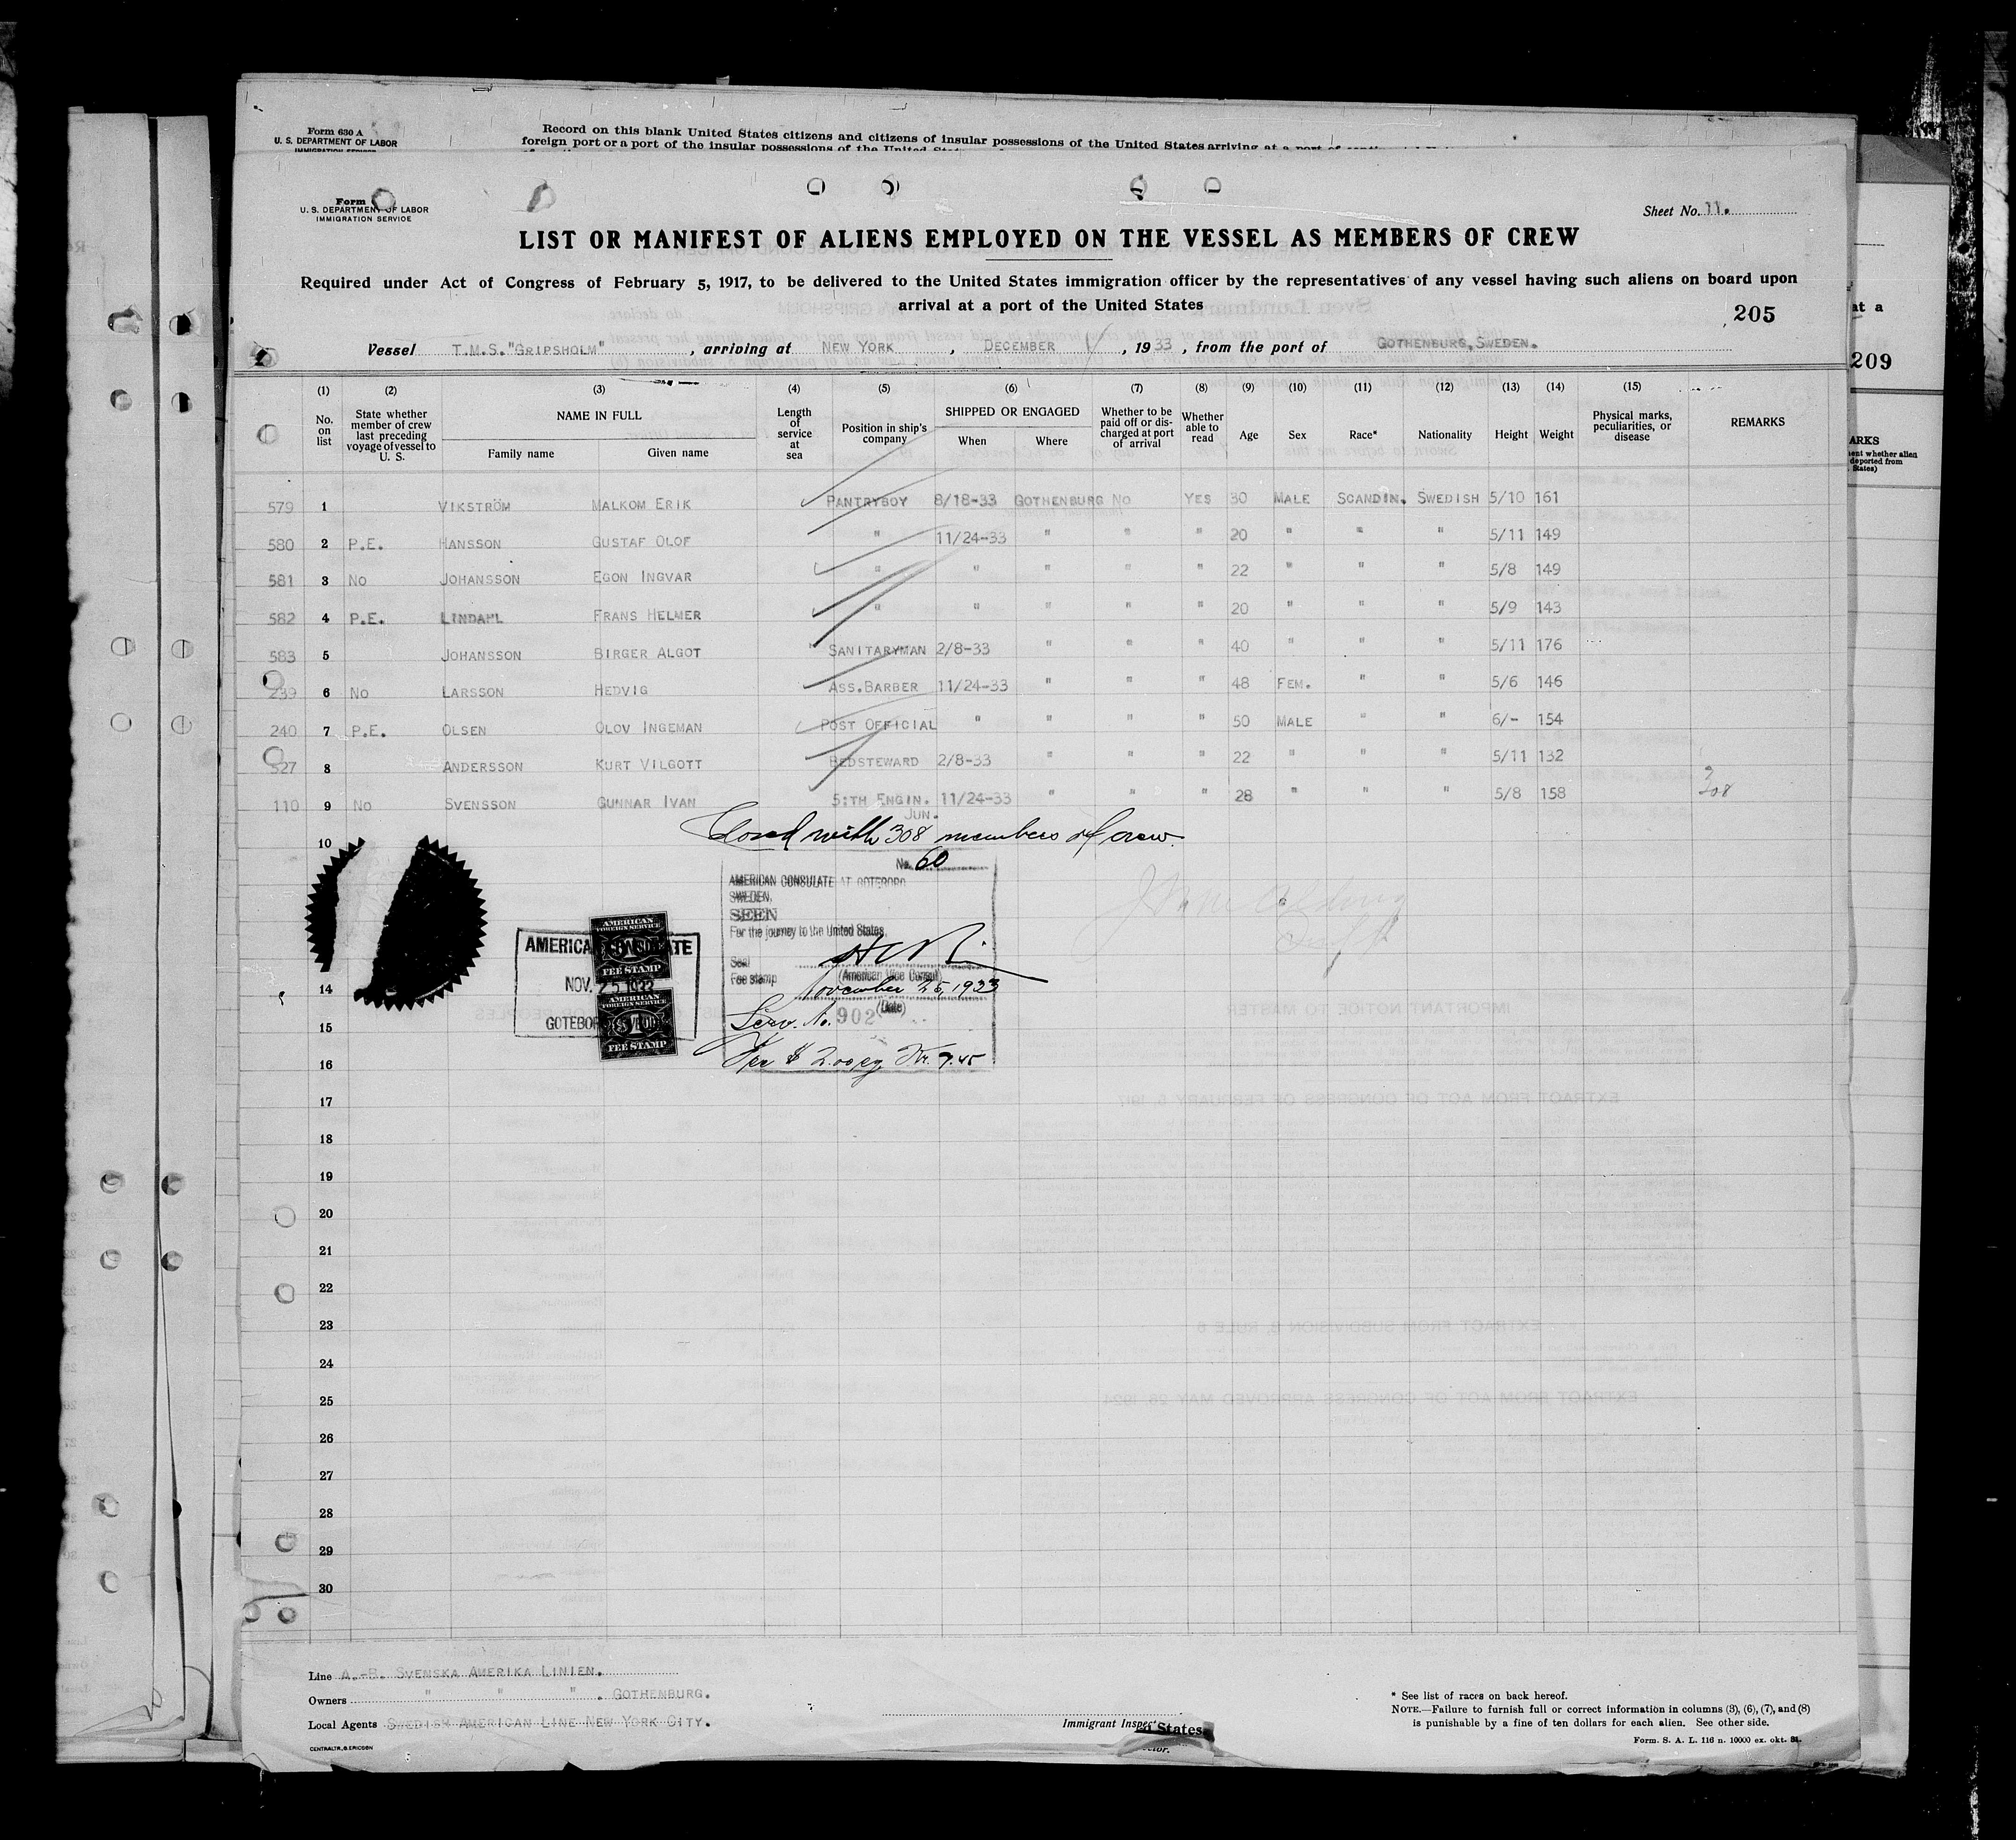 Form 630 A
U. S. DEPARTMENT OF LABOR
IMMIGRATION SERVICE
Record on this blank United States citizens and citizens of insular possessions of the United States arriving at a port of
foreign port or a port of the insular possessions of the United
Form
U. S. DEPARTMENT OF LABOR
IMMIGRATION SERVICE
Sheet No. 11.
LIST OR MANIFEST OF ALIENS EMPLOYED ON THE VESSEL AS MEMBERS OF CREW
Required under Act of Congress of February 5, 1917, to be delivered to the United States immigration officer by the representatives of any vessel having such aliens on board upon
arrival at a port of the United States
205
Vessel T.M.S. "GRIPSHOLM", arriving at NEW YORK, DECEMBER, 1933, from the port of GOTHENBURG, SWEDEN.
at a
209
(1) (2) (3) (4) (5) (6) (7) (8) (9) (10) (11) (12) (13) (14) (15)
No. on list | State whether member of crew last preceding voyage of vessel to U. S. | NAME IN FULL Family name Given name | Length of service at sea | Position in ship's company | SHIPPED OR ENGAGED When Where | Whether to be paid off or discharged at port of arrival | Whether able to read | Age | Sex | Race* | Nationality | Height | Weight | Physical marks, peculiarities, or disease | REMARKS
579 1 VIKSTRÖM MALKOM ERIK PANTRYBOY 8/18-33 GOTHENBURG NO YES 30 MALE SCANDIN. SWEDISH 5/10 161
580 2 P.E. HANSSON GUSTAF OLOF " 11/24-33 " " " 20 " " " 5/11 149
581 3 NO JOHANSSON EGON INGVAR " " " " " 22 " " " 5/8 149
582 4 P.E. LINDAHL FRANS HELMER " " " " " 20 " " " 5/9 143
583 5 JOHANSSON BIRGER ALGOT SANITARYMAN 2/8-33 " " " 40 " " " 5/11 176
239 6 NO LARSSON HEDVIG ASS.BARBER 11/24-33 " " " 48 FEM. " " 5/6 146
240 7 P.E. OLSEN OLOV INGEMAN POST OFFICIAL " " " " 50 MALE " " 6/- 154
527 8 ANDERSSON KURT VILGOTT BEDSTEWARD 2/8-33 " " " 22 " " " 5/11 132
110 9 NO SVENSSON GUNNAR IVAN 5:TH ENGIN. 11/24-33 " " " 28 " " " 5/8 158
JUN.
308
Closed with 308 members of crew.
10
No. 60
AMERICAN CONSULATE AT GOTEBORG
SWEDEN,
SEEN
For the journey to the United States,
Seal
(American Vice Consul)
Fee stamp
November 25, 1933
(Date)
Serv. No. 902
Fee $ 2.00 eq. Kr. 7.45
AMERICAN CONSULATE
NOV. 25 1933
GOTEBORG, SWEDEN
AMERICAN
FOREIGN SERVICE
$1
FEE STAMP
AMERICAN
FOREIGN SERVICE
$1
FEE STAMP
14
15
16
17
18
19
20
21
22
23
24
25
26
27
28
29
30
Line A.-B. SVENSKA AMERIKA LINIEN.
Owners " " " . GOTHENBURG.
Local Agents SWEDISH AMERICAN LINE NEW YORK CITY.
CENTRALTR., G. ERICSON
Immigrant Inspec
States
* See list of races on back hereof.
NOTE.—Failure to furnish full or correct information in columns (3), (6), (7), and (8)
is punishable by a fine of ten dollars for each alien. See other side.
Form. S. A. L. 116 n. 10000 ex. okt. 31.